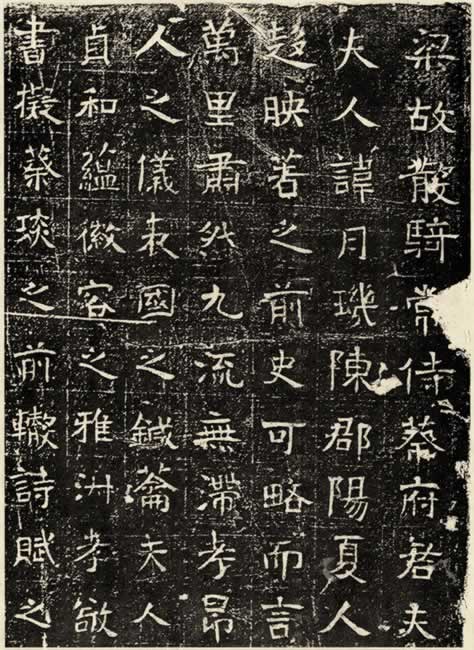 梁故散騎常侍蔡府君夫
夫人諱月璣陳郡陽夏人
映若之前史可略而言
萬里肅然九流無滯考昂
人之儀表國之鍼蘥夫人
貞和蘊徽容之雅孝敬
書擬蔡琰之前轍詩賦之